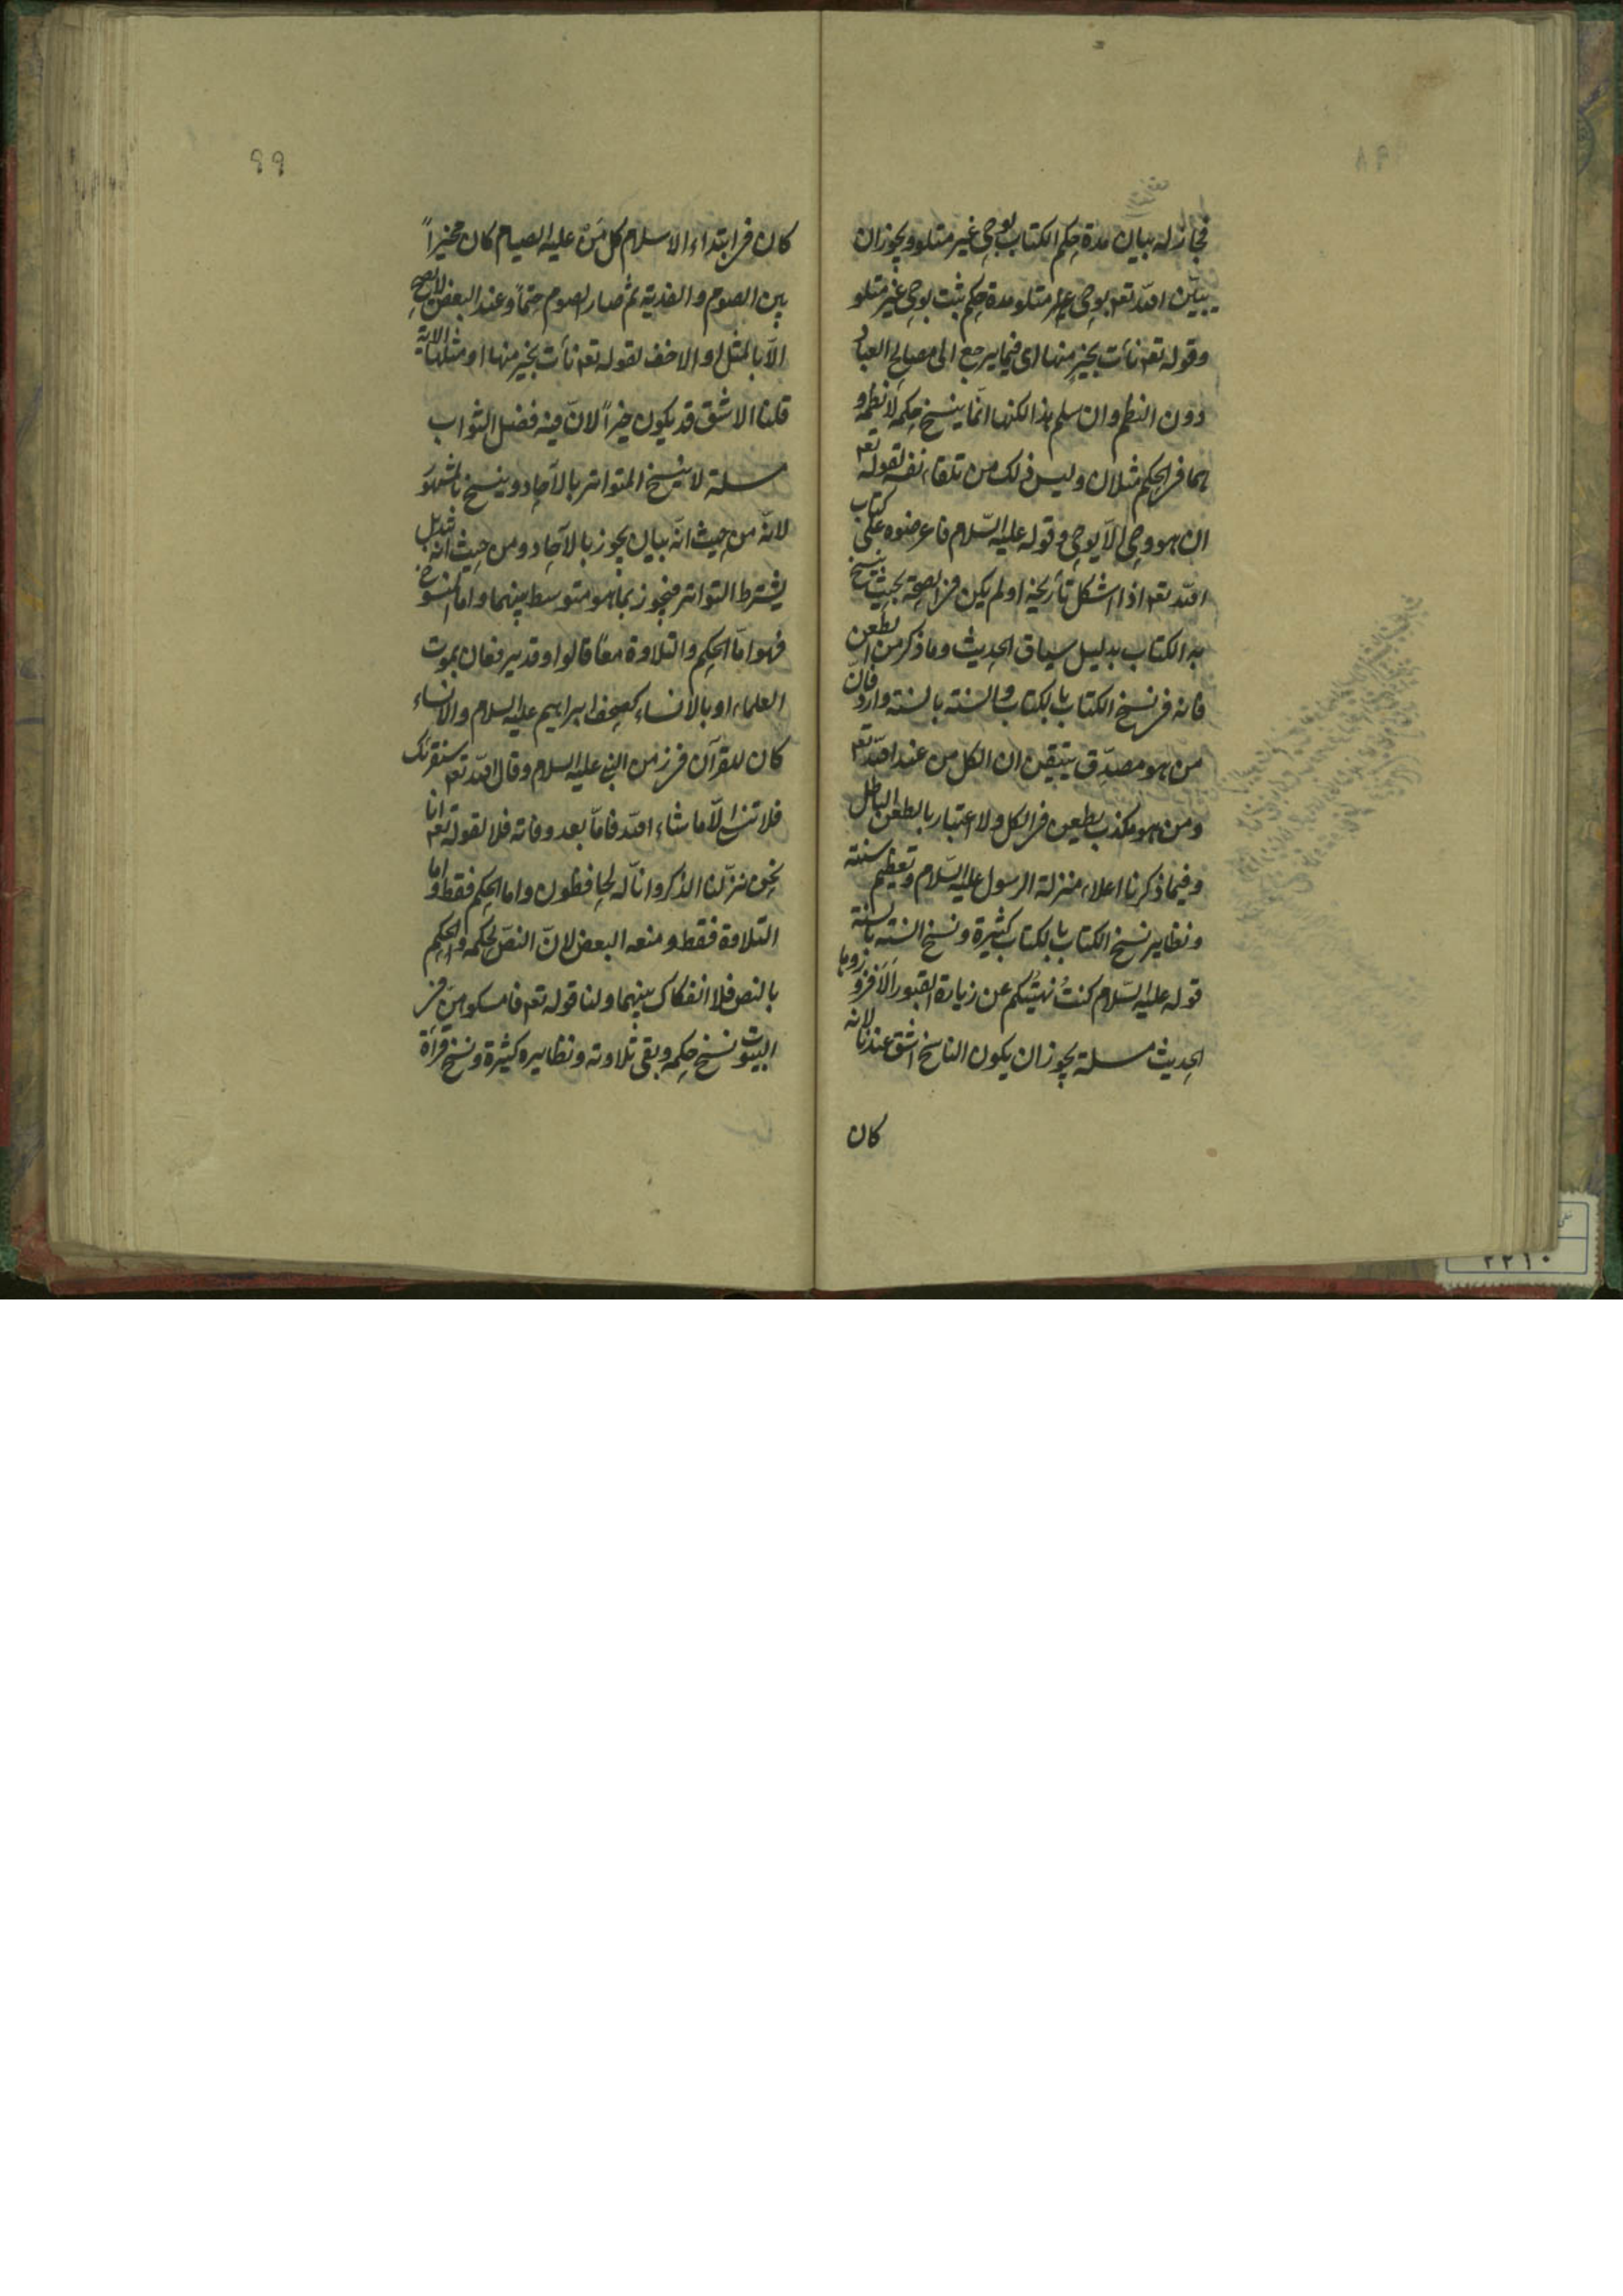 فجاز له بيان مدة حكم الكتاب بوحي غير متلو ويجوز ان
يبيّن الله تعه بوحي غير متلو مدة حكم ثبت بوحي غير متلو
وقوله تعه نأت بخير منها اى فيما يرجع الى مصالح العباد
دون النظم وان سلم هذا لكنها انما ينسخ حكمه لا نظمه و
هما فى الحكم مثلان وليس ذلك من تلقاء نفسه لقوله تعه
ان هو وحي الّا يوحي وقوله عليه السّلام فاعرضوه على كتاب
الله تعه اذا اشكل تأريخه او لم يكن فى الصحة بحيث ينسخ
به الكتاب بدليل سياق الحديث وما ذكر من الطعن
فانه فى نسخ الكتاب بالكتاب والسنة بالسنة وارد فان
من هو مصدّق يتيقن ان الكل من عند الله تعه
ومن هو مكذب يطعن فى الكل ولا اعتبار بالطعن الباطل
وفيما ذكرنا اعلاء منزلة الرسول عليه السّلام وتعظيم سنته
ونظاير نسخ الكتاب بالكتاب كثيرة ونسخ السنة بالسنة
قوله عليه السّلام كنتُ نهيتُكم عن زيارة القبور اَلَا فزوروها
الحديث مسلة يجوز ان يكون الناسخ اشق عندنا لانه
كان
٩٩
كان فى ابتداء الاسلام كل مَنْ عليه الصيام كان مخيّراً
بين الصوم والفدية ثم صار الصوم حتماً وعند البعض لا يصح
الّا بالمثل او الاخف لقوله تعه نأت بخير منها او مثلها الاية
قلنا الاشق قد يكون خيراً لانّ فيه فضل الثواب
مسلة لا ينسخ المتواتر بالآحاد وينسخ بالمشهور
لانّه من حيث انّه بيان يجوز بالآحاد ومن حيث انه تبديل
يشترط التواتر فيجوز بما هو متوسط بينهما واما المنسوخ
فهو امّا الحكم والتلاوة معاً قالوا وقد يرفعان بموت
العلماء او بالانساء كصحف ابراهيم عليه السلام والانساء
كان للقرآن فى زمن النبي عليه السلام وقال الله تعه سنقرئك
فلا تنسى الّا ما شاء الله فامّا بعد وفاته فلا لقوله تعه انا
نحن نزّلنا الذكر وانّا له لحافظون واما الحكم فقط واما
التلاوة فقط ومنعه البعض لانّ النصّ لحكمه والحكم
بالنص فلا انفكاك بينهما ولنا قوله تعه فامسكوهنّ فى
البيوت نسخ حكمه وبقى تلاوته ونظايره كثيرة ونسخ قراءة